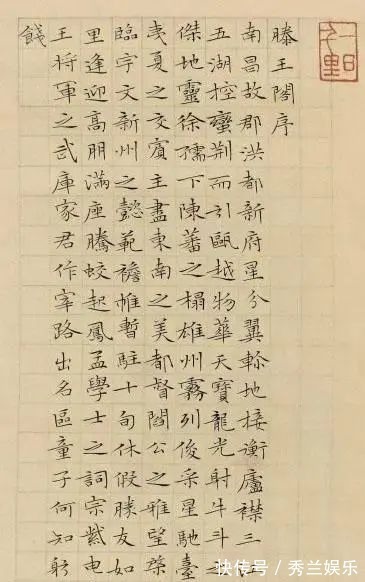 滕王閣序
南昌故郡洪都新府星分翼軫地接衡廬襟三
五湖控蠻荊而引甌越物華天寶龍光射牛斗之
傑地靈徐孺下陳蕃之榻雄州霧列俊采星馳臺
夷夏之交賓主盡東南之美都督閻公之雅望棨
臨宇文新州之懿範襜帷暫駐十旬休假勝友如
里逢迎高朋滿座騰蛟起鳳孟學士之詞宗紫電
王將軍之武庫家君作宰路出名區童子何知躬
餞
快传号/秀兰娱乐